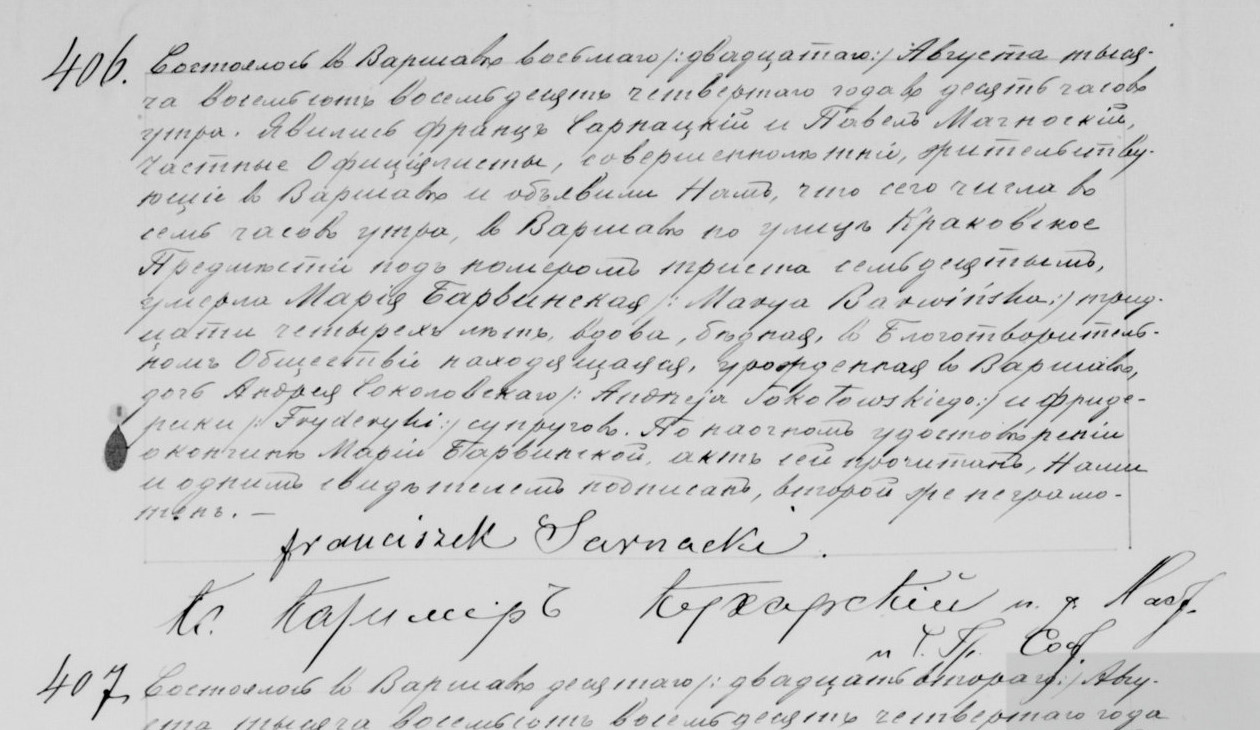 406. Состоялось въ Варшавѣ восьмаго /: двадцатаго :/ Августа тыся-
ча восемьсотъ восемьдесятъ четвертаго года въ десять часовъ
утра. Явились Францъ Сарнацкій и Павелъ
частные Официялисты, совершеннолѣтніе, жительству-
ющіе въ Варшавѣ и объявили Намъ, что сего числа въ
семь часовъ утра, въ Варшавѣ по улицѣ Краковское
Предмѣстіе подъ номеромъ триста семьдесятымъ,
умерла Марія Барвинская /: Marya Barwińska :/ трид-
цати четырехъ лѣтъ, вдова, бѣдная, въ Благотворитель-
номъ Обществѣ находящаяся, урожденная въ Варшавѣ,
дочь Андрея Соколовскаго /: Andrzeja Sokołowskiego :/ и Фриде-
рики /: Fryderyki :/ супруговъ. По наочномъ удостовѣреніи
о кончинѣ Маріи Барвинской, актъ сей прочитанъ, Нами
и однимъ свидѣтелемъ подписанъ, второй же неграмо-
тенъ. —
Franciszek Sarnacki.
Кс. Казимѣръ и. д. Наст.
и Ч. Гр. Сос.
407. Состоялось въ Варшавѣ десятаго /: двадцать втораго :/ Авгу-
ста тысяча восемьсотъ восемьдесятъ четвертаго года